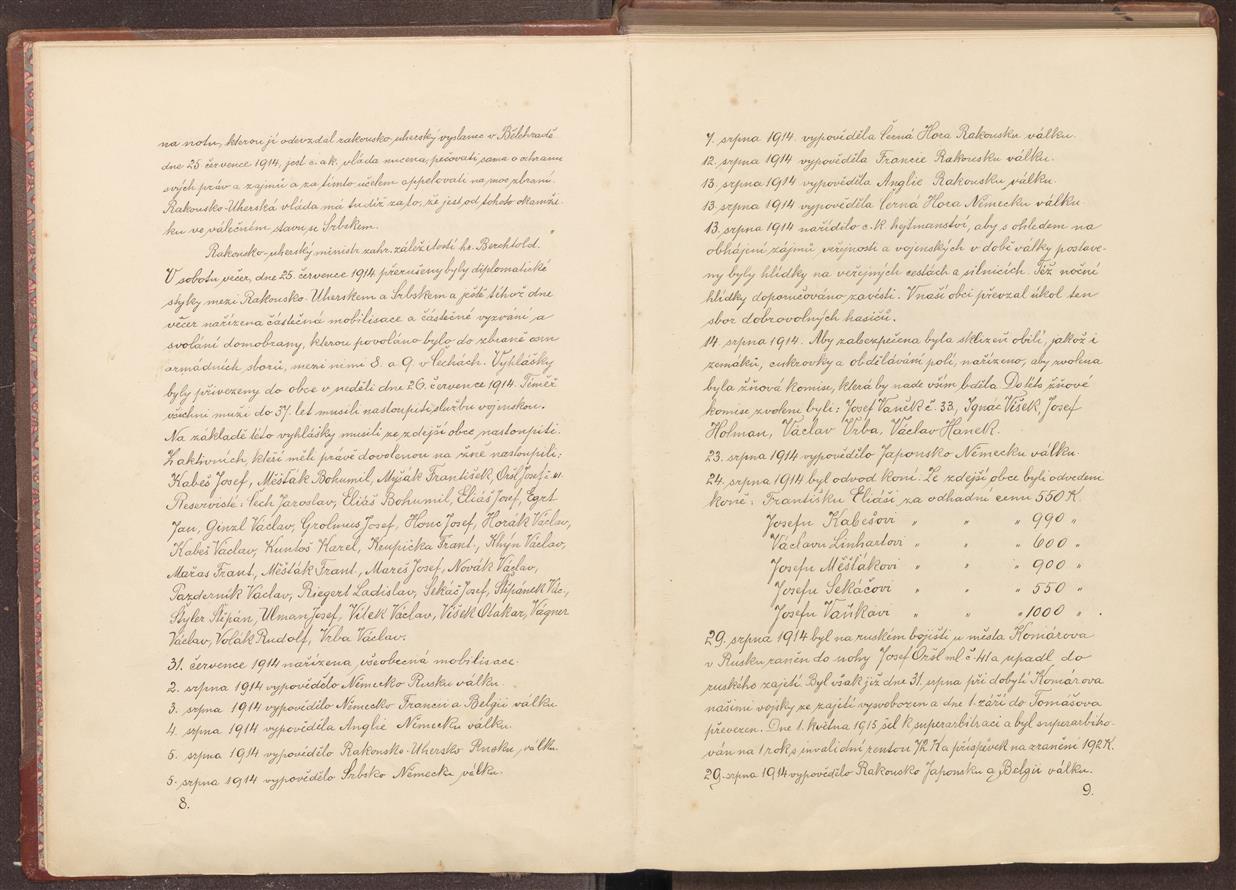 na notu, kterou jí odevzdal rakousko-uherský vyslanec v Bělehradě
dne 25 července 1914, jest c. a k. vláda nucena, pečovati sama o ochranu
svých práv a zájmů a za tímto účelem appelovati na moc zbraní.
Rakousko-Uherská vláda má tudíž za to, že jest od tohoto okamži-
ku ve válečném stavu se Srbskem.
Rakousko-uherský ministr zahr. záležitostí hr. Berchtold.
V sobotu večer, dne 25. července 1914 přerušeny byly diplomatické
styky mezi Rakousko-Uherskem a Srbskem a ještě tíhož dne
večer nařízena částečná mobilisace a částečné vyzvání a
svolání domobrany, kterou povoláno bylo do zbraně osm
armádních sborů, mezi nimi 8. a 9. v Čechách. Vyhlášky
byly přivezeny do obce v neděli dne 26. července 1914. Téměř
všichni muži do 37. let musili nastoupiti službu vojenskou.
Na základě této vyhlášky musili ze zdejší obce nastoupiti.
Z aktivních, kteří měli právě dovolenou na žně nastoupili:
Kabeš Josef, Měšťák Bohumil, Myšák František, Oršl Josef č. 41.
Reservisté: Čech Jaroslav, Eliáš Bohumil, Eliáš Josef, Egrt
Jan, Ginzl Václav, Grolmus Josef, Honc Josef, Horák Václav,
Kabeš Václav, Kuntoš Karel, Krupička Frant., Khýn Václav,
Mařas Frant., Měšťák Frant., Mareš Josef, Novák Václav,
Pazderník Václav, Riegert Ladislav, Sekáč Josef, Štěpánek Vác.,
Štyler Štěpán, Ulman Josef, Vítek Václav, Víšek Otakar, Vágner
Václav, Volák Rudolf, Vrba Václav.
31. července 1914 nařízena všeobecná mobilisace.
2. srpna 1914 vypovědělo Německo Rusku válku.
3. srpna 1914 vypovědělo Německo Francii a Belgii válku
4. srpna 1914 vypověděla Anglie Německu válku.
5. srpna 1914 vypovědělo Rakousko-Uhersko Rusku válku.
5. srpna 1914 vypovědělo Srbsko Německu válku.
8.
7. srpna 1914 vypověděla Černá Hora Rakousku válku.
12. srpna 1914 vypověděla Francie Rakousku válku.
13. srpna 1914 vypověděla Anglie Rakousku válku.
13. srpna 1914 vypověděla Černá Hora Německu válku.
13. srpna 1914 nařídělo c. k. hejtmanství, aby s ohledem na
obhájení zájmů veřejnosti a vojenských v době války postave-
ny byly hlídky na veřejných cestách a silnicích. Též noční
hlídky doporučováno zavésti. V naší obci převzal úkol ten
sbor dobrovolných hasičů.
14 srpna 1914. Aby zabezpečena byla sklizeň obilí, jakož i
zemáků, cukrovky a obdělávání polí, nařízeno, aby zvolena
byla žňová komise, která by nade vším bděla. Do této žňové
komise zvoleni byli: Josef Vaněk č. 33, Ignác Víšek, Josef
Holman, Václav Vrba, Václav Hanek.
23. srpna 1914 vypovědělo Japonsko Německu válku.
24. srpna 1914 byl odvod koní. Ze zdejší obce byli odvedeni
koně: Františku Eliáši za odhadní cenu 550 K.
Josefu Kabešovi " " " 990 "
Václavu Linhartovi " " " 600 "
Josefu Měšťákovi " " " 900 "
Josefu Sekáčovi " " " 550 "
Josefu Vaňkovi " " " 1000 " .
29. srpna 1914 byl na ruském bojišti u města Komárova
v Rusku raněn do nohy Josef Oršl ml. č. 41 a upadl do
ruského zajetí. Byl však již dne 31. srpna při dobytí Komárova
našimi vojsky ze zajetí vysvobozen a dne 1. září do Tomášova
převezen. Dne 1. května 1915 šel k superarbitraci a byl superarbitro-
ván na 1 rok s invalidní rentou 72 K a příspěvek na zranění 192 K.
29. srpna 1914 vypovědělo Rakousko Japonsku a Belgii válku.
9.